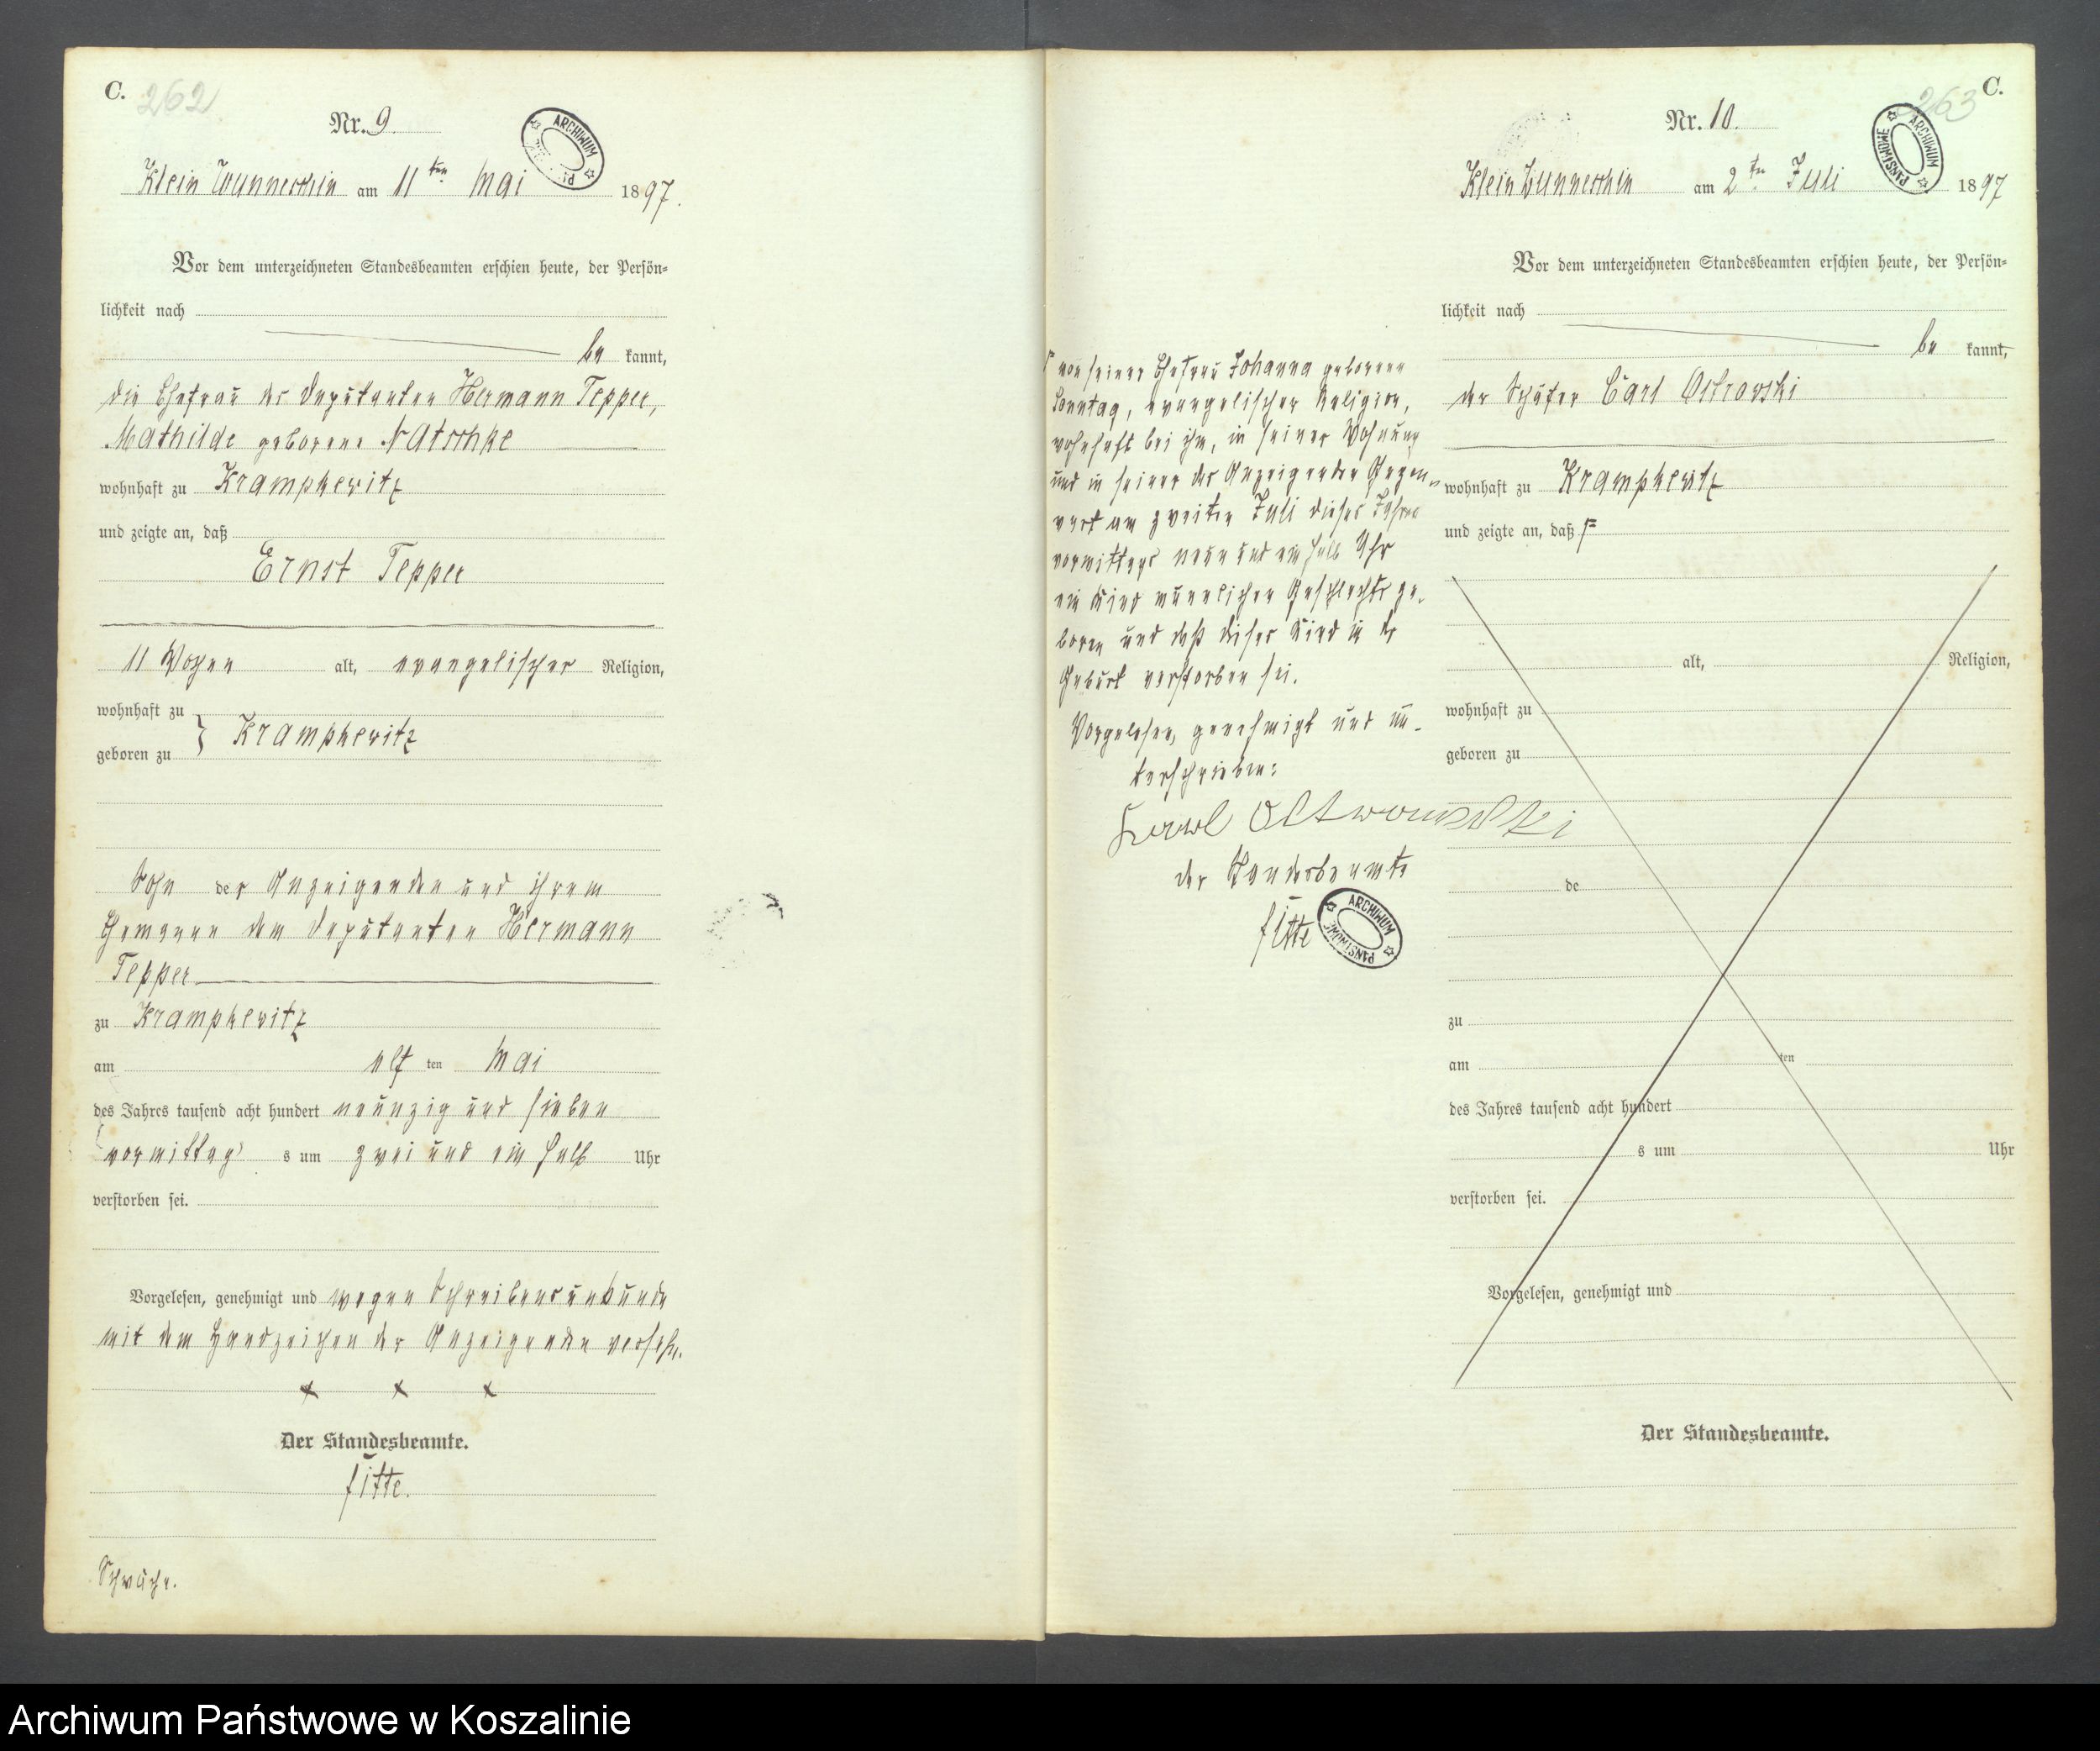 C. 262
Nr. 9.
ARCHIWUM
Klein Wunneschin am 11ten Mai 1897.
Vor dem unterzeichneten Standesbeamten erschien heute, der Persön-
lichkeit nach
be kannt,
die Ehefrau des Deputanten Hermann Tepper,
Mathilde geborene Natschke
wohnhaft zu Krampkewitz
und zeigte an, daß
Ernst Tepper
11 Wochen alt, evangelischer Religion,
wohnhaft zu
geboren zu } Krampkewitz
Sohn der Anzeigenden und ihrem
Ehemann dem Deputanten Hermann
Tepper
zu Krampkewitz
am elf ten Mai
des Jahres tausend acht hundert neunzig und sieben
vormittag s um zwei und ein halb Uhr
verstorben sei.
Vorgelesen, genehmigt und wegen Schreibensunkunde
mit dem Handzeichen der Anzeigenden versehn.
x x x
Der Standesbeamte.
Fitte.
Schwäche.
263 C.
Nr. 10.
ARCHIWUM PAŃSTWOWE
Klein Wunneschin am 2ten Juli 1897
Vor dem unterzeichneten Standesbeamten erschien heute, der Persön-
lichkeit nach
be kannt,
der Schäfer Carl Ostrovski
wohnhaft zu Krampkewitz
und zeigte an, daß
von seiner Ehefrau Johanna geborene
Sonntag, evangelischer Religion,
wohnhaft bei ihm, in seiner Wohnung
und in seiner des Anzeigenden Gegen-
wart am zweiten Juli dieses Jahres
vormittags neun und ein halb Uhr
ein Kind männlichen Geschlechts ge-
boren und daß dieses Kind in der
Geburt verstorben sei.
Vorgelesen, genehmigt und un-
terschrieben:
Karl
der Standesbeamte
Fitte
ARCHIWUM PAŃSTWOWE
alt, Religion,
wohnhaft zu
geboren zu
de
zu
am ten
des Jahres tausend acht hundert
s um Uhr
verstorben sei.
Vorgelesen, genehmigt und
Der Standesbeamte.
Archiwum Państwowe w Koszalinie